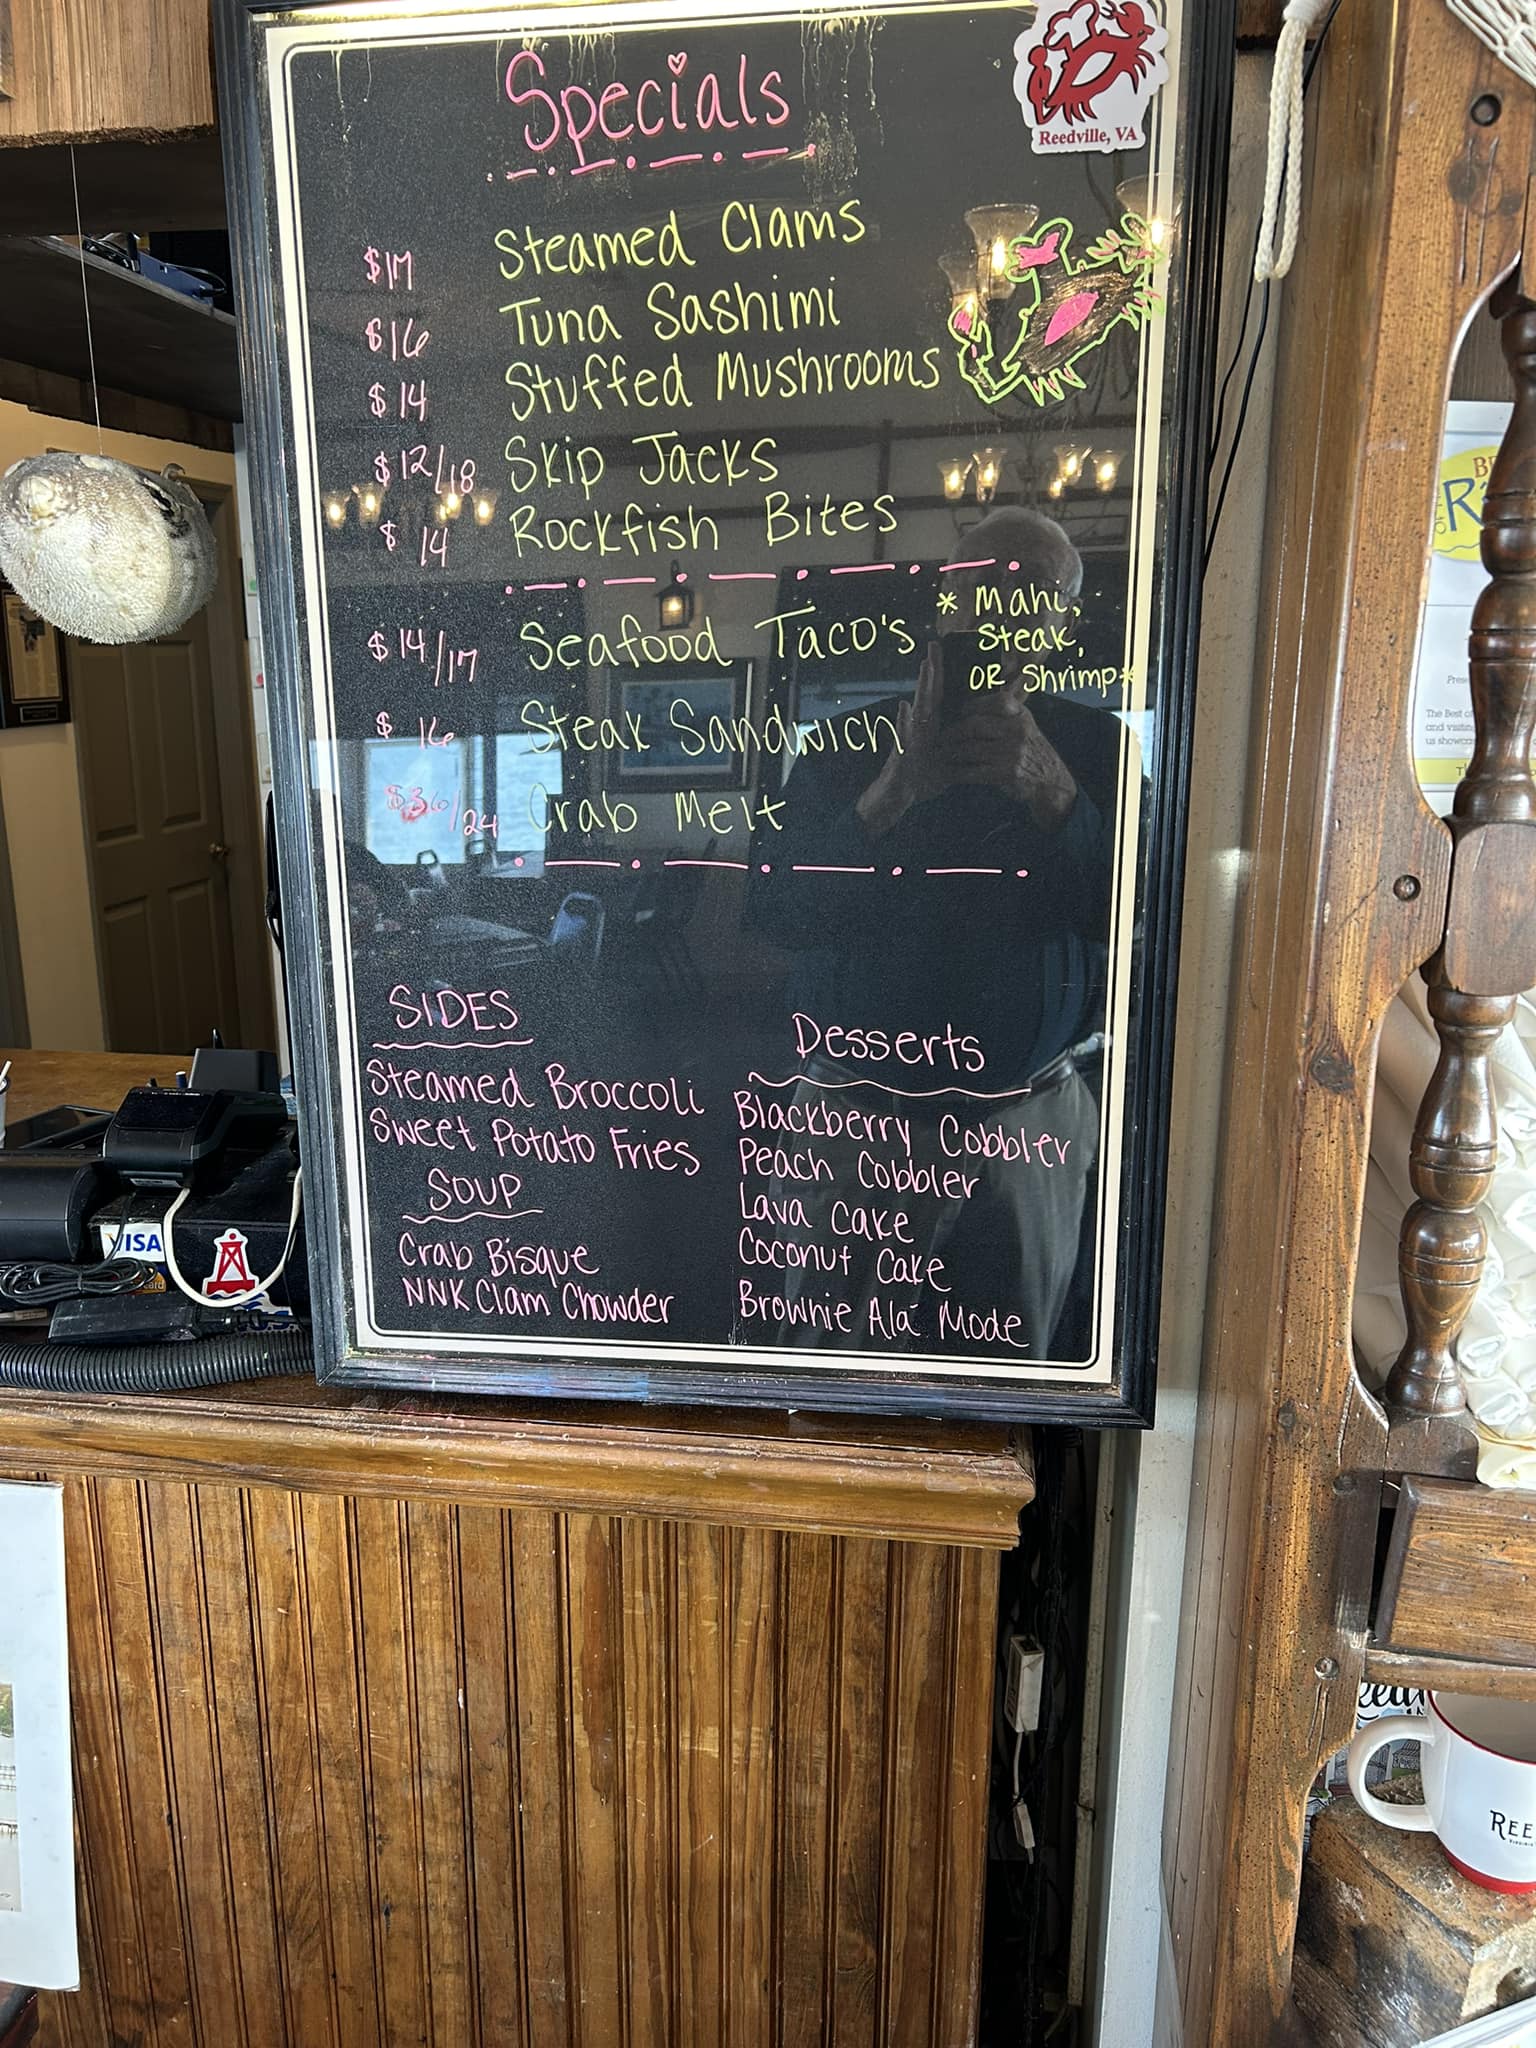 Specials
Reedville, VA
$17 Steamed Clams
$16 Tuna Sashimi
$14 Stuffed Mushrooms
$12/18 Skip Jacks
$14 Rockfish Bites
$14/17 Seafood Taco's * Mahi,
Steak,
OR Shrimp*
$16 Steak Sandwich
$36/24 Crab Melt
SIDES
Steamed Broccoli
Sweet Potato Fries
SOUP
Crab Bisque
NNK Clam Chowder
Desserts
Blackberry Cobbler
Peach Cobbler
Lava Cake
Coconut Cake
Brownie Alá Mode
VISA
The Best of
and visiting
us showcas
REE